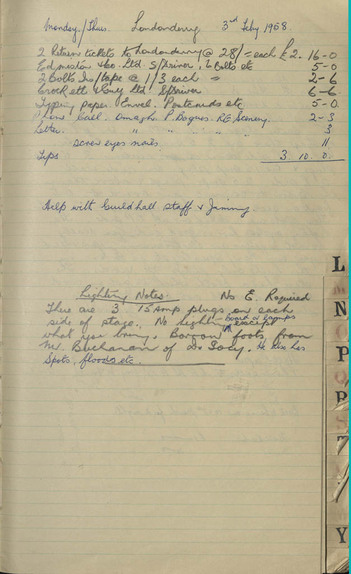 Monday/Thus. Londonderry 3rd Feby. 1968
2 Return tickets to Londonderry @ 28/= each £2. 16-0
Edmiston & Co. Ltd S/Driver, 6 Bolts etc 5-0
2 Bolts Ins/tape @ 1/3 each = 2-6
Brockett & Coy Ltd S/Driver 6-6
Typing paper. Envel. Postcards etc 5-0
Phone Call. Omagh P. Bogues. RE Scenery. 2-3
Letter. " " " " 3
Screw eyes nails. 11
Tips 3 10 0
Help with Guildhall staff & Jimmy.
Lighting Notes: No E. Required
There are 3 15 Amp plugs on each
side of stage. No lighting board or lamps except
what you bring. Borrow foots from
Mr. Buchanan of Dr Socy. He also has
Spots, floods etc.
L
N
P
R
Y